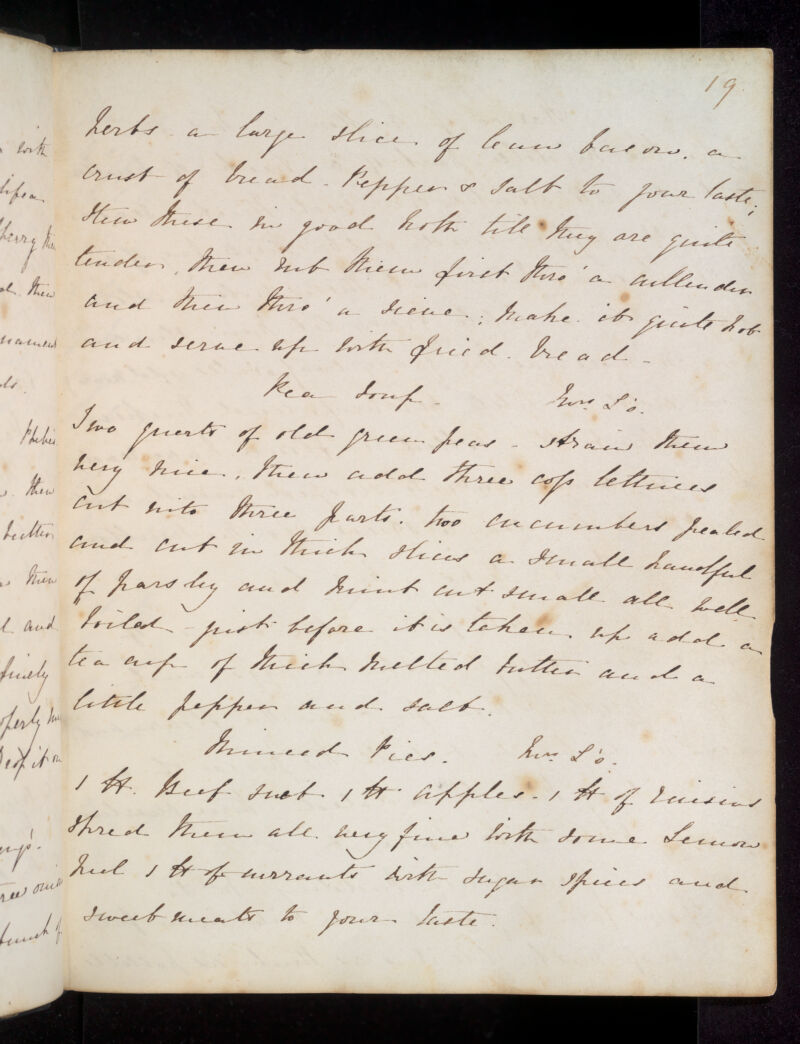 19
herbs a large slice of lean bacon, a
crust of bread - Pepper & salt to your taste;
stew these in good broth till they are quite
tender, then rub them first thro' a cullender
and then thro' a sieve; make it quite hot
and serve up with fried bread -
Pea Soup - Mrs L's.
Two quarts of old green peas - strain them
very nice, then add three coss lettuces
cut into three parts. two cucumbers pealed
and cut in thick slices a small handful
of parsley and mint cut small all well
boiled - just before it is taken up add a
tea cup of thick melted butter and a
little pepper and salt.
Minced Pies. Mrs L's.
1 lb. Beef suet 1 lb apples - 1 lb of raisins
shred them all very fine with some Lemon
peel 1 lb of currants with sugar spices and
sweetmeats to your taste.
with
then
then
butter
then
and
finely